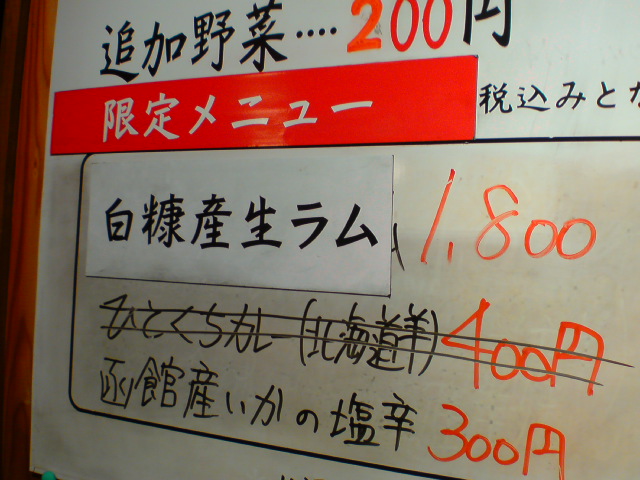 追加野菜‥‥200円
限定メニュー
税込みとな
白糠産生ラム 1,800
ひとくちカレー(北海道羊)400円
函館産いかの塩辛 300円